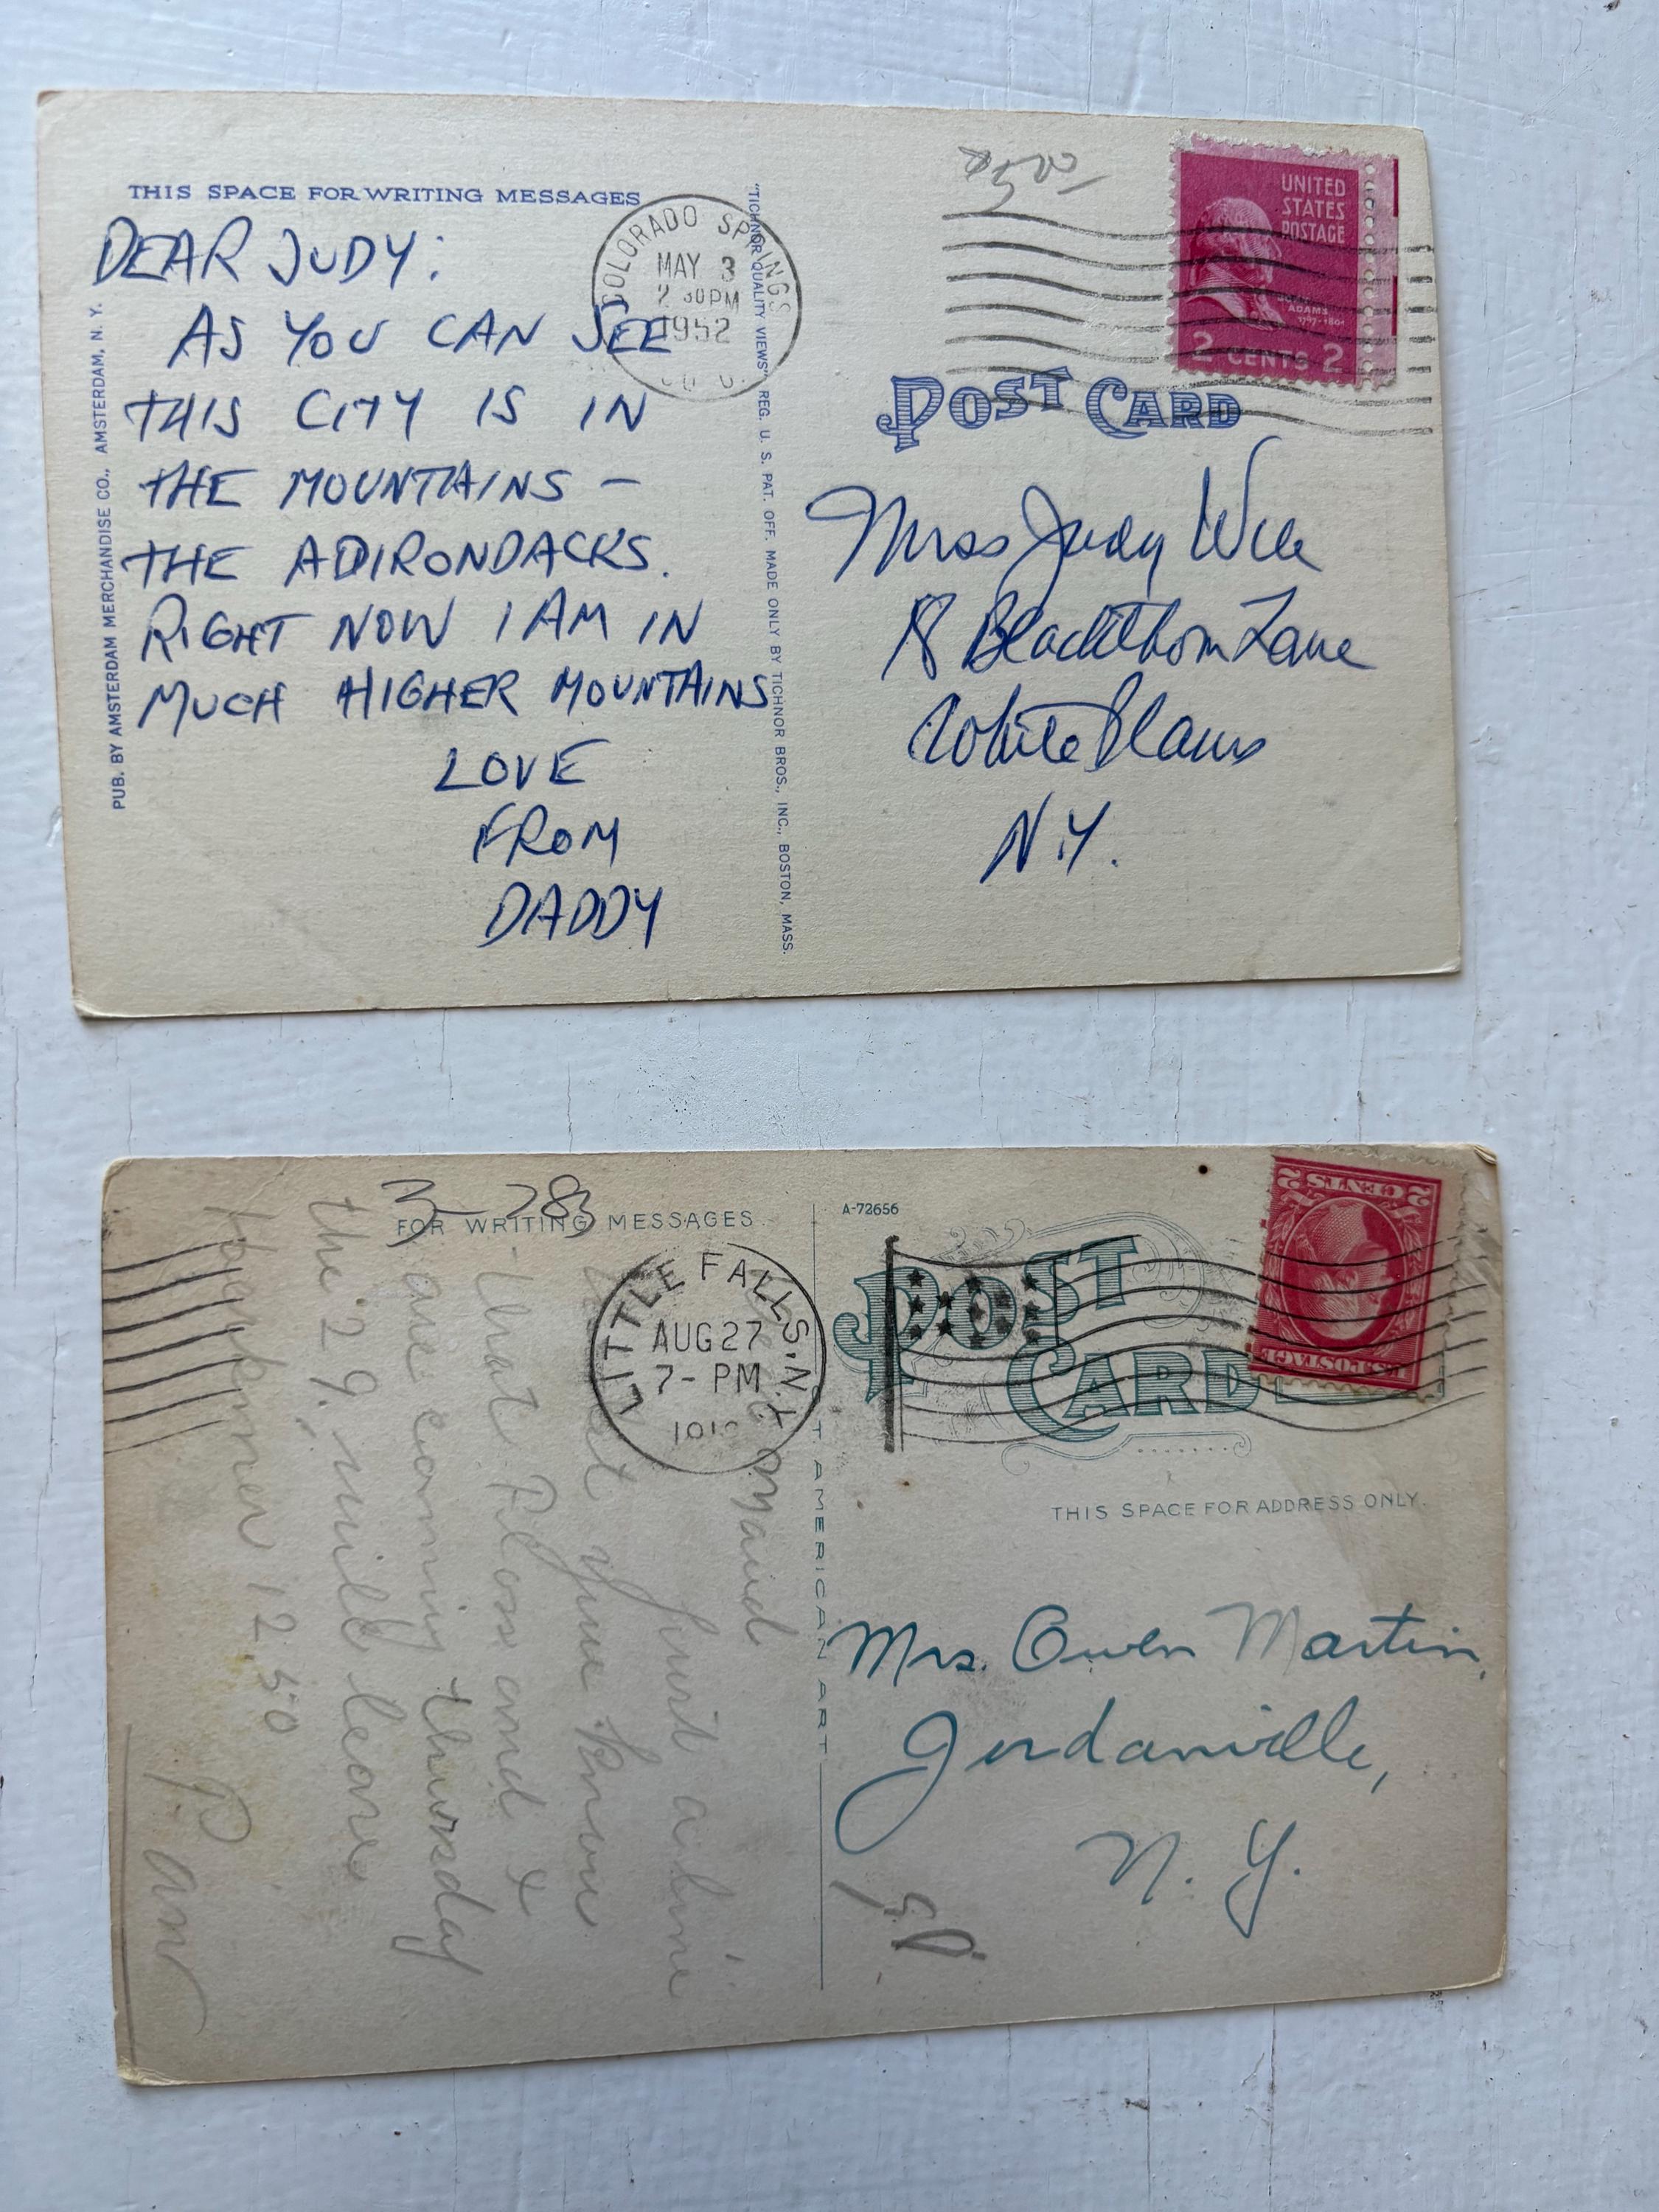 THIS SPACE FOR WRITING MESSAGES
DEAR JUDY:
AS YOU CAN SEE
THIS CITY IS IN
THE MOUNTAINS —
THE ADIRONDACKS.
RIGHT NOW I AM IN
MUCH HIGHER MOUNTAINS
LOVE
FROM
DADDY
PUB. BY AMSTERDAM MERCHANDISE CO., AMSTERDAM, N. Y.
"TICHNOR QUALITY VIEWS" REG. U. S. PAT. OFF. MADE ONLY BY TICHNOR BROS., INC., BOSTON, MASS.
COLORADO SPRINGS
MAY 3
2 30 PM
1952
UNITED
STATES
POSTAGE
ADAMS
2 CENTS 2
POST CARD
Miss Judy
8 Blackthorn Lane
White Plains
N.Y.
3-283
FOR WRITING MESSAGES
LITTLE FALLS, N.Y.
AUG 27
7- PM
Maud
Just a line
to let you know
that Flos and I
are coming thursday
the 29, will leave
Herkimer 12.50
A-72656
POST
CARD
2 CENTS 2
U.S. POSTAGE
THIS SPACE FOR ADDRESS ONLY.
AMERICAN ART
Mrs. Owen Martin,
Jordanville,
N. Y.